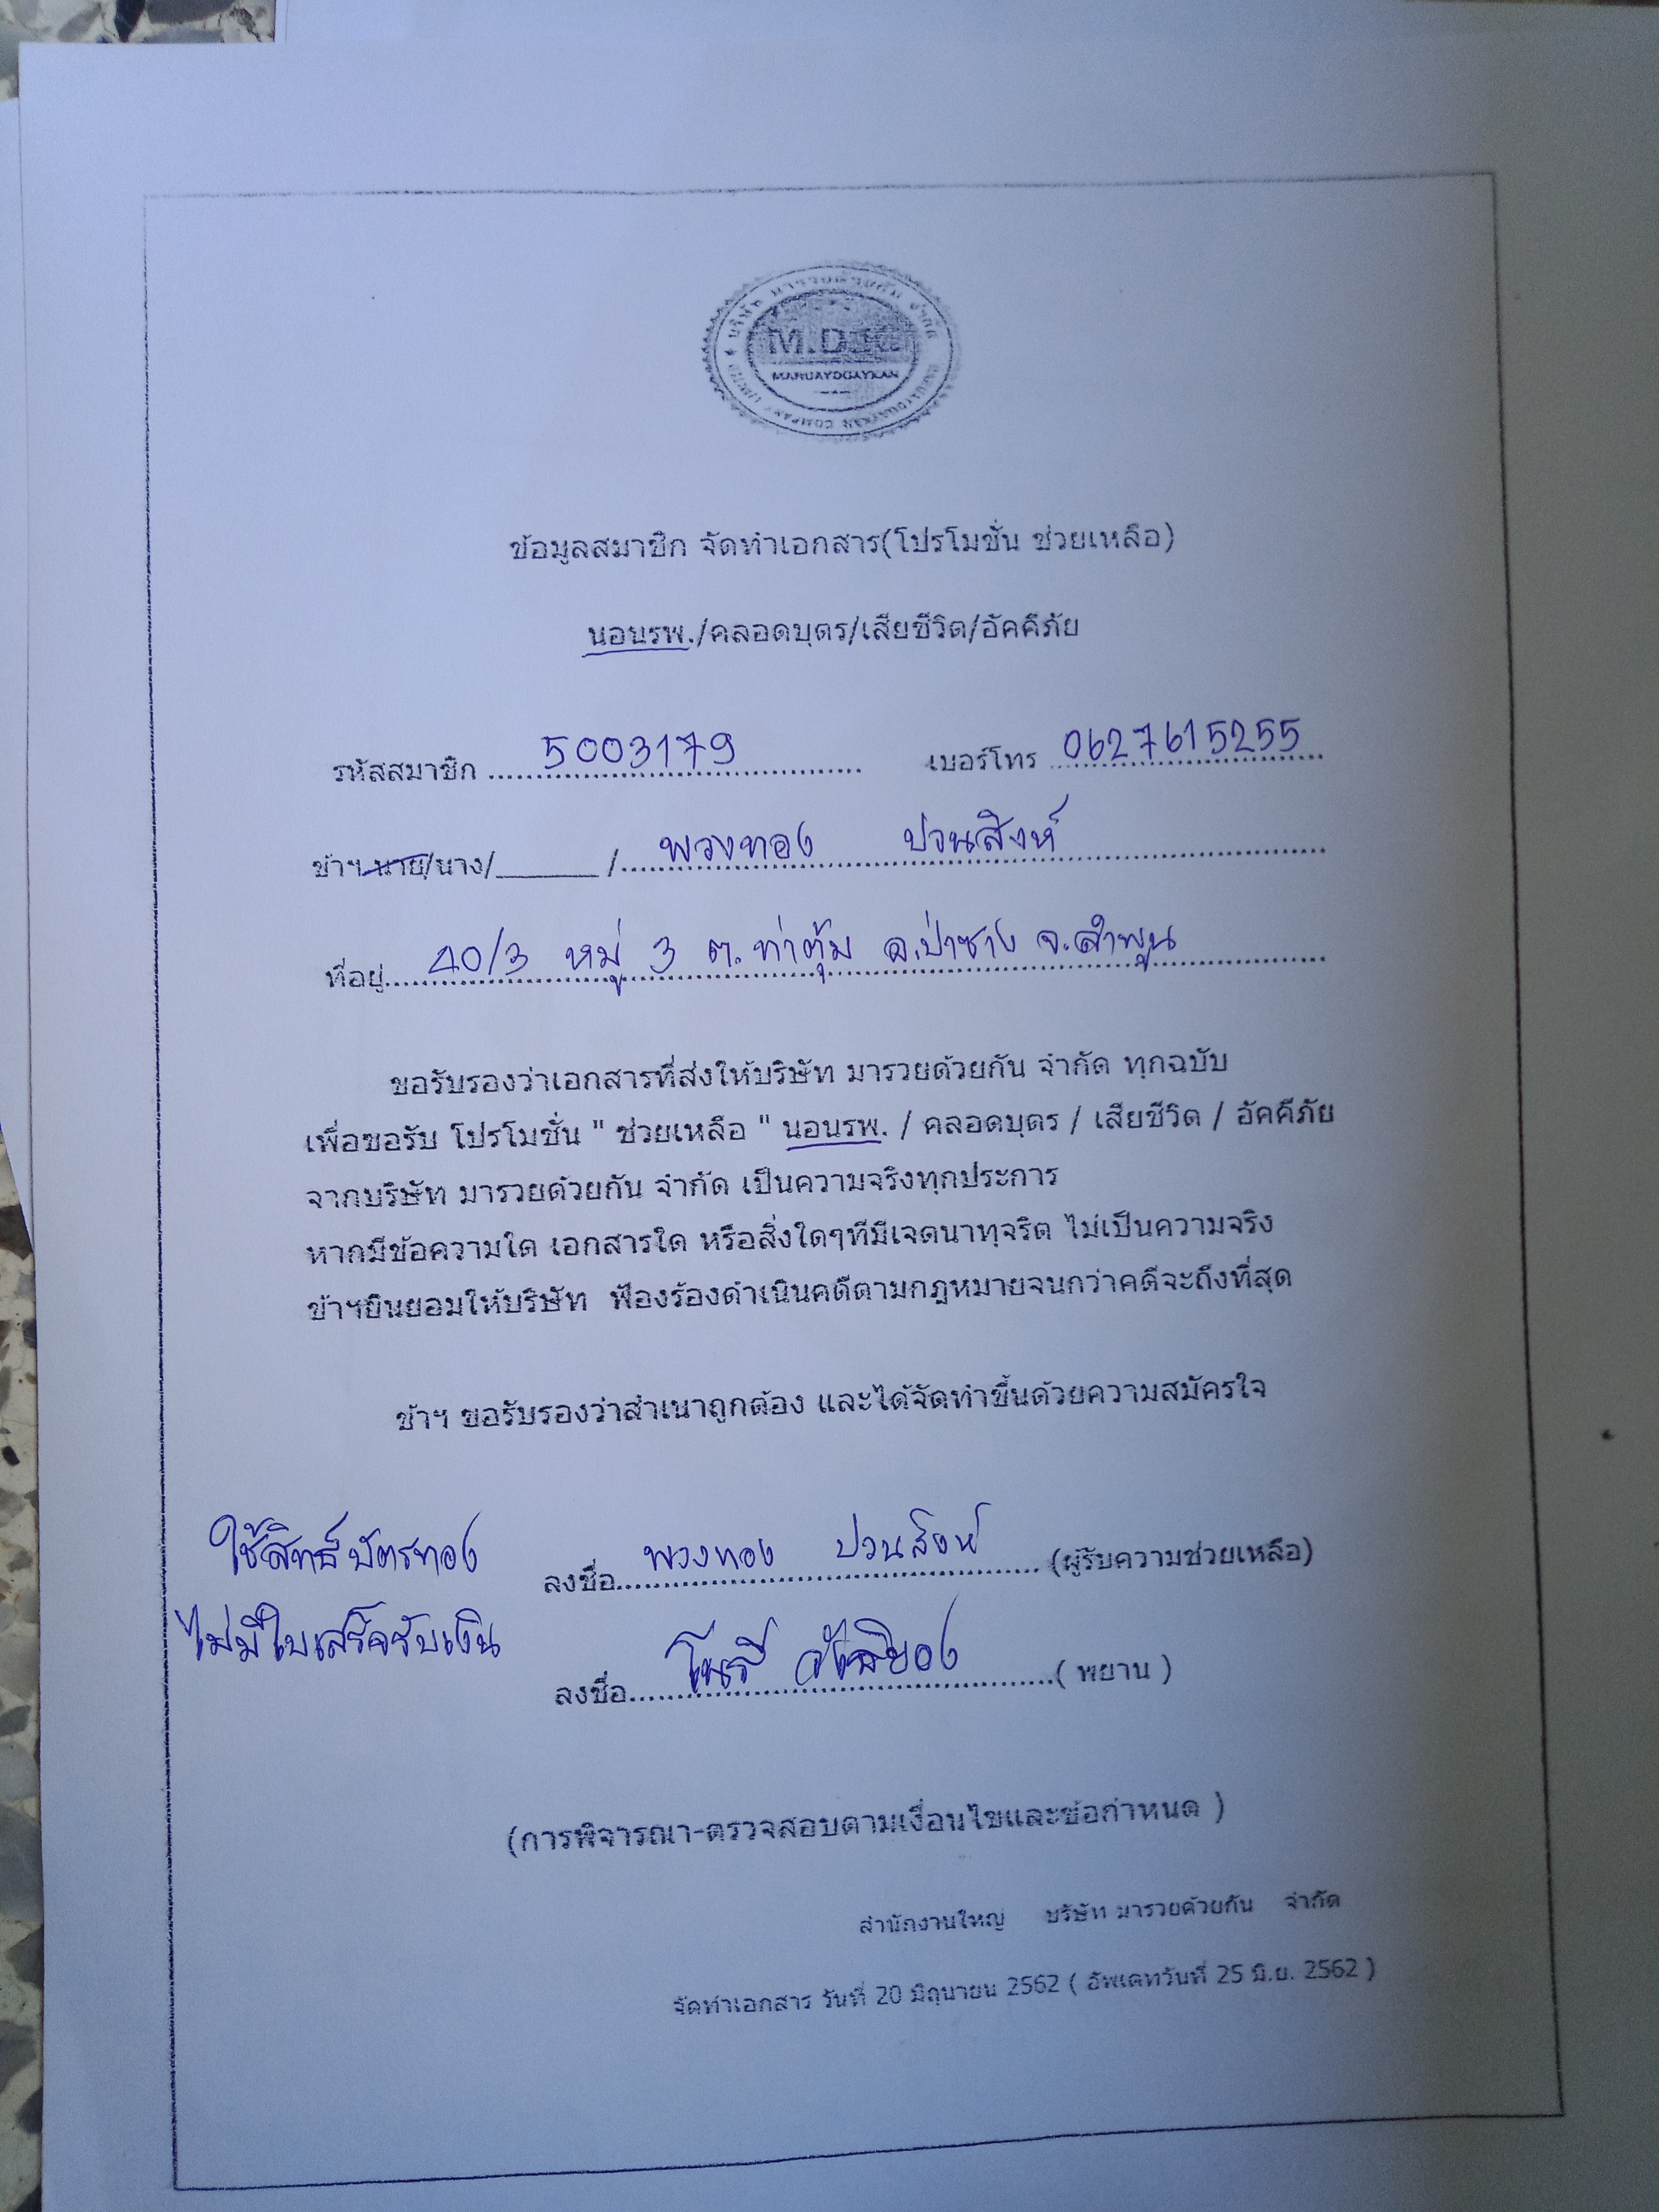 บริษัท มารวยด้วยกัน จำกัด
MARUAYDUAYKAN
ข้อมูลสมาชิก จัดทำเอกสาร(โปรโมชั่น ช่วยเหลือ)
นอนรพ./คลอดบุตร/เสียชีวิต/อัคคีภัย
รหัสสมาชิก 5003179 เบอร์โทร 0627615255
ข้าฯ นาย/นาง/______/ พวงทอง ปวนสิงห์
ที่อยู่ 40/3 หมู่ 3 ต.ท่าตุ้ม อ.ป่าซาง จ.ลำพูน
ขอรับรองว่าเอกสารที่ส่งให้บริษัท มารวยด้วยกัน จำกัด ทุกฉบับ
เพื่อขอรับ โปรโมชั่น " ช่วยเหลือ " นอนรพ. / คลอดบุตร / เสียชีวิต / อัคคีภัย
จากบริษัท มารวยด้วยกัน จำกัด เป็นความจริงทุกประการ
หากมีข้อความใด เอกสารใด หรือสิ่งใดๆที่มีเจตนาทุจริต ไม่เป็นความจริง
ข้าฯยินยอมให้บริษัท ฟ้องร้องดำเนินคดีตามกฎหมายจนกว่าคดีจะถึงที่สุด
ข้าฯ ขอรับรองว่าสำเนาถูกต้อง และได้จัดทำขึ้นด้วยความสมัครใจ
ใช้สิทธิ์บัตรทอง
ลงชื่อ พวงทอง ปวนสิงห์ (ผู้รับความช่วยเหลือ)
ไม่มีใบเสร็จรับเงิน
ลงชื่อ ( พยาน )
(การพิจารณา-ตรวจสอบตามเงื่อนไขและข้อกำหนด )
สำนักงานใหญ่ บริษัท มารวยด้วยกัน จำกัด
จัดทำเอกสาร วันที่ 20 มิถุนายน 2562 ( อัพเดทวันที่ 25 มิ.ย. 2562 )